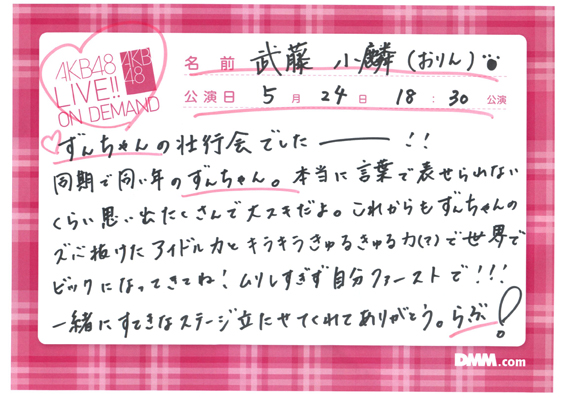 AKB48
LIVE!!
ON DEMAND
AKB
48
名前 武藤 小麟(おりん)
公演日 5月24日 18:30公演
ずんちゃんの壮行会でした――!!
同期で同い年のずんちゃん。本当に言葉で表せられない
くらい思い出たくさんで大スキだよ。これからもずんちゃんの
ズバ抜けたアイドル力とキラキラきゅるきゅる力(?)で世界で
ビックになってきてね!ムリしすぎず自分ファーストで!!!
一緒にすてきなステージ立たせてくれてありがとう。らぶ!
DMM.com